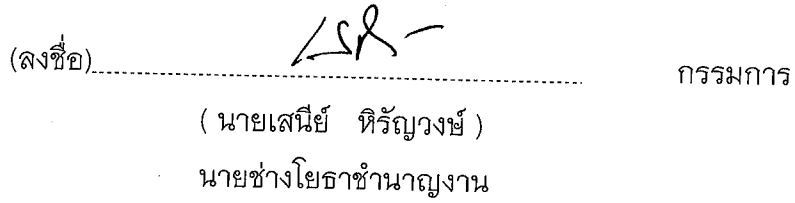 (ลงชื่อ)........................................................ กรรมการ
( นายเสนีย์ หิรัญวงษ์ )
นายช่างโยธาชำนาญงาน